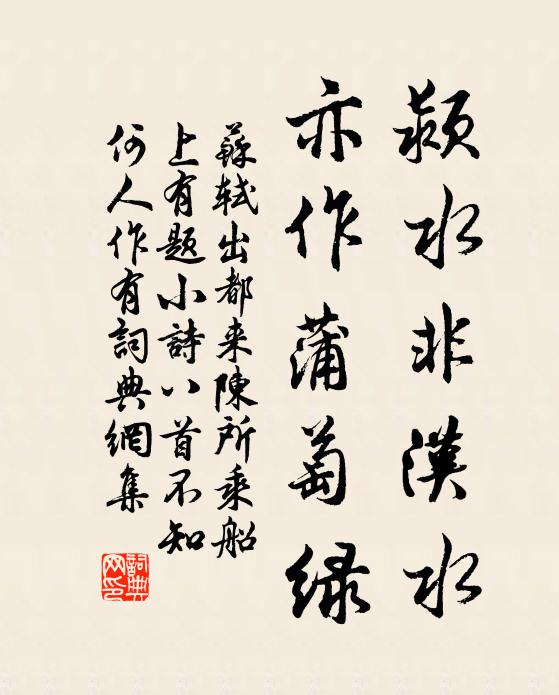 颍水非漢水
亦作蒲萄绿
蘇轼出都来陳所乘船
上有题小詩八首不知
何人作有詞典網集
詞典网印